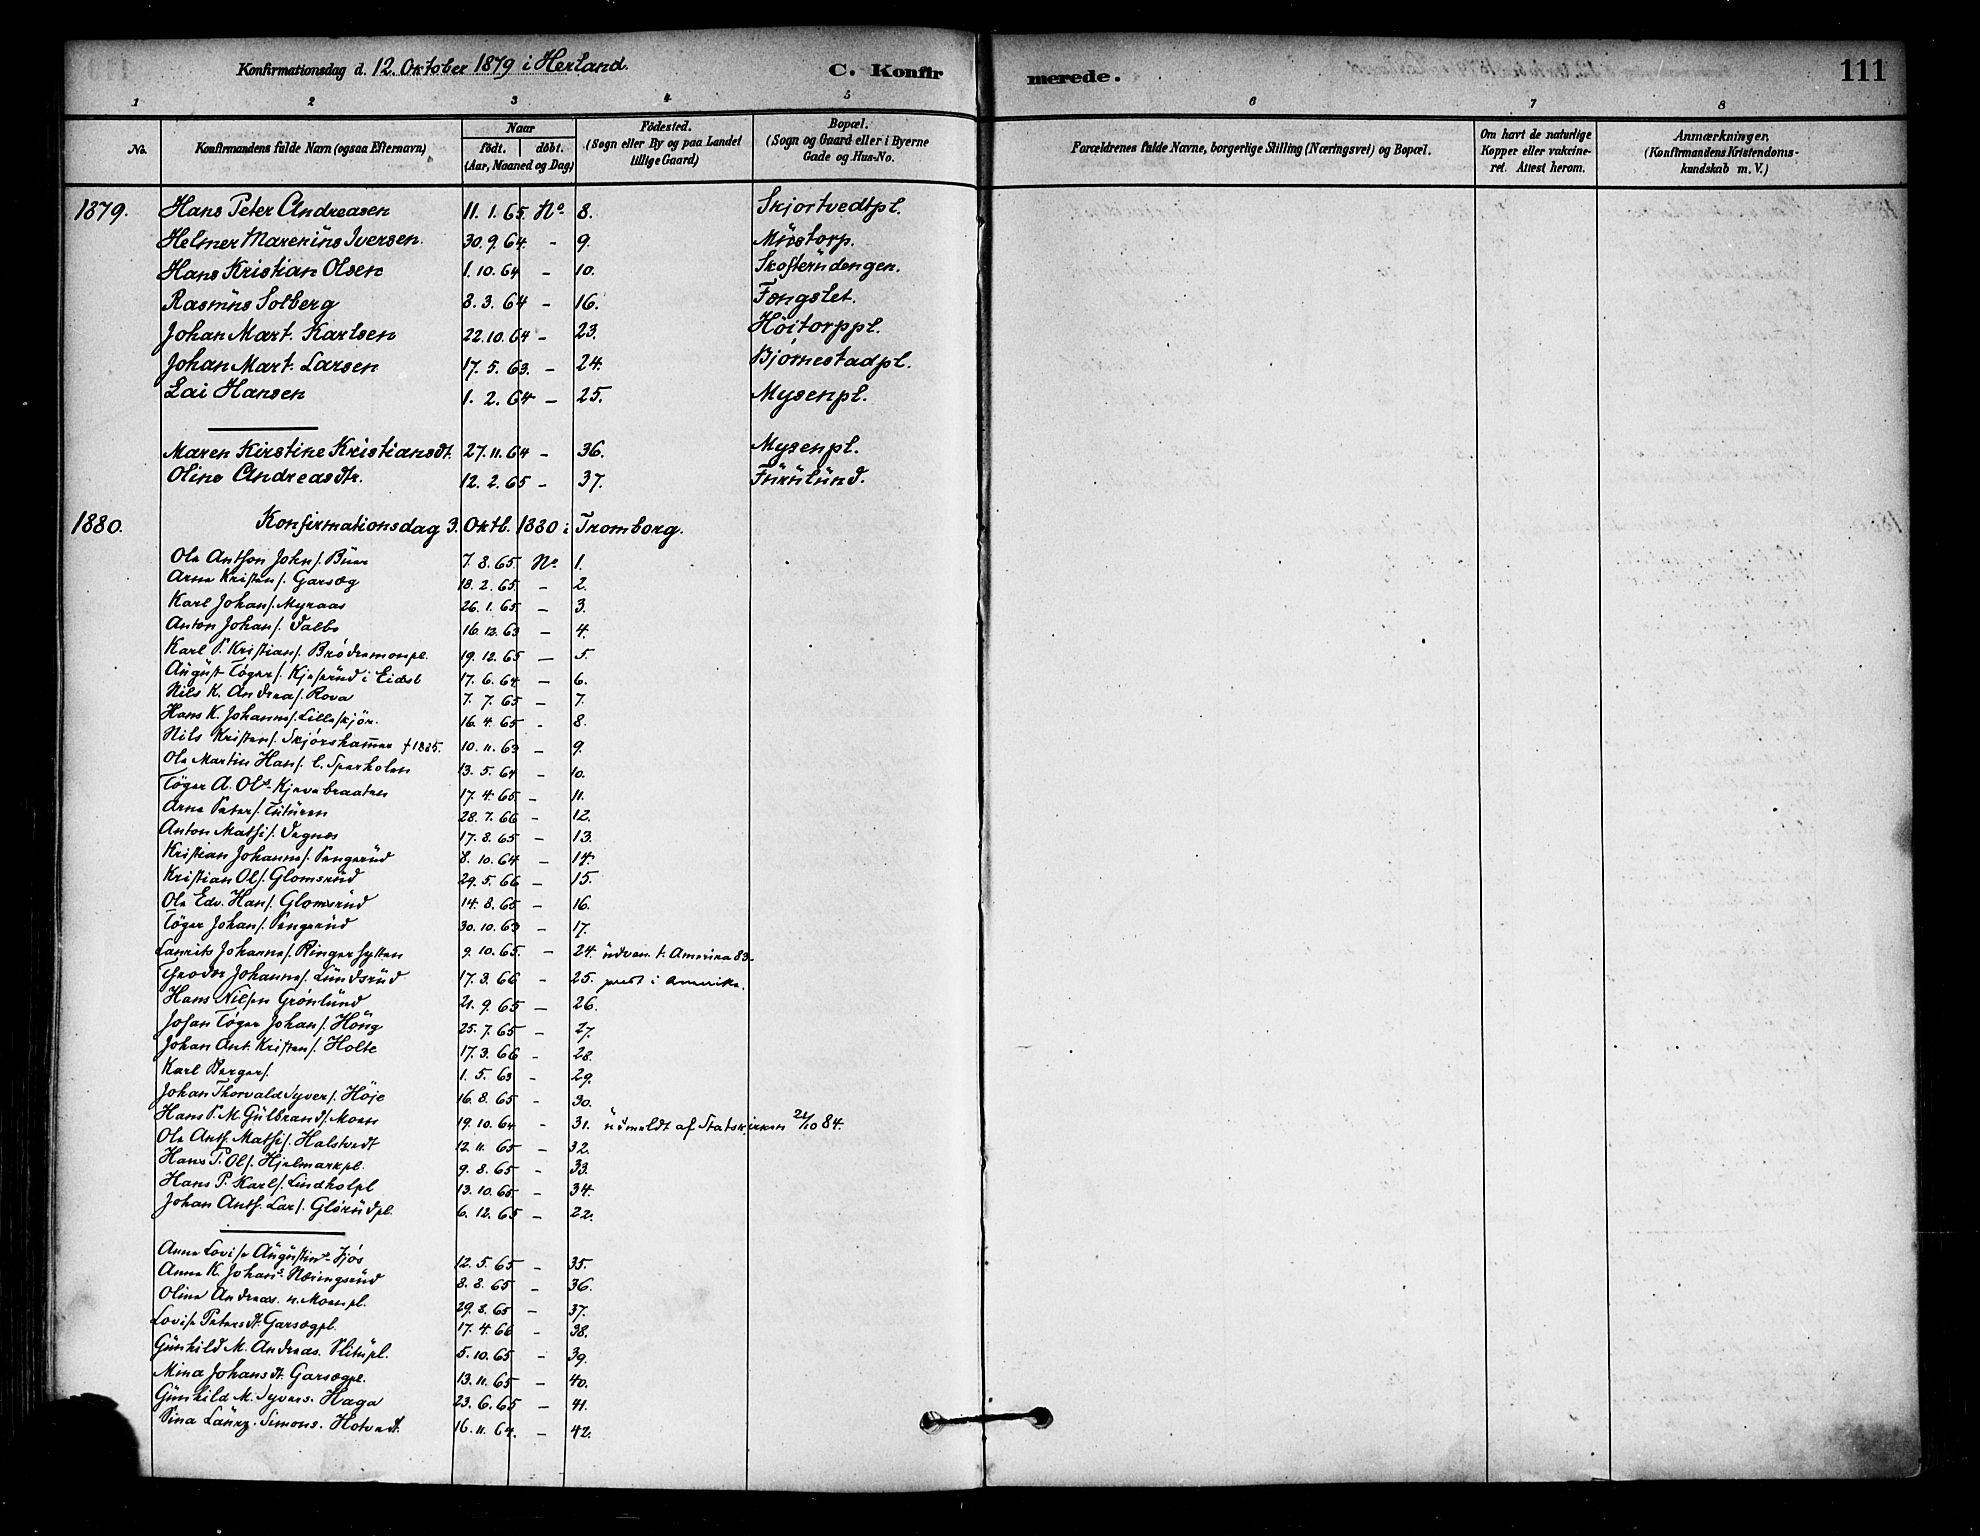 Konfirmationsdag d. 12. Oktober 1879 i Herland.
C. Konfir
merede.
111
1 2 3 4 5 6 7 8
No.
Konfirmandens fulde Navn (ogsaa Efternavn)
Naar
født. døbt.
(Aar, Maaned og Dag)
Fødested.
(Sogn eller By og paa Landet
tillige Gaard)
Bopæl.
(Sogn og Gaard eller i Byerne
Gade og Hus-No.
Forældrenes fulde Navne, borgerlige Stilling (Næringsvei) og Bopæl.
Om havt de naturlige
Kopper eller vaksine-
ret. Attest herom.
Anmærkninger.
(Konfirmandens Kristendoms-
kundskab m. V.)
1879. Hans Peter Andreasen 11. 1. 65. No. 8. Skjortvedtpl.
Helmer Marenius Iversen. 30. 9. 64. - 9. Mustorp.
Hans Kristian Olsen 1. 10. 64 - 10. Skofterudengen.
Rasmus Solberg 8. 3. 64 - 16. Fængslet.
Johan Mart. Karlsen 22. 10. 64 - 23. Høitorppl.
Johan Mart. Larsen 17. 5. 63. - 24. Bjørnestadpl.
Lai Hansen 1. 2. 64 - 25. Mysenpl.
Maren Kirstine Kristiansdt. 27. 11. 64 - 36. Mysenpl.
Oline Andreasdtr. 12. 2. 65 - 37. Furulund.
1880. Konfirmationsdag 3. Oktb. 1880 i Tromborg.
Ole Anthon Johns. Buer 7. 8. 65 No. 1.
Arne Kristens. Garsæg 18. 2. 65 - 2.
Karl Johans. Myraas 26. 1. 65 - 3.
Anton Johans. Dalbo 16. 12. 63 - 4.
Karl P. Kristians. Brødremonpl. 19. 12. 65 - 5.
August Tøgers. Kjeserud i Eidsb 17. 6. 64 - 6.
Nils K. Andreas. Rova 7. 7. 65 - 7.
Hans K. Johanns. Lilleskjør. 16. 4. 65 - 8.
Nils Kristens. Skjørshammer † 1885. 10. 11. 63 - 9.
Ole Martin Hans. l. Sperholen 13. 5. 64 - 10.
Tøger A. Ols. Kjevebraaten 17. 4. 65. - 11.
Arne Peters. Tituren 28. 7. 66 - 12.
Anton Maths. Degnes 17. 8. 65 - 13.
Kristian Johanns. Pengerud 8. 10. 64 - 14.
Kristian Ols. Glomsrud 29. 5. 66 - 15.
Ole Edv. Hans. Glomsrud 14. 8. 65 - 16.
Tøger Johans. Pengerud 30. 10. 63 - 17.
Laurits Johanns. Ringerhytten 9. 10. 65. - 24. udvan. t. Amerika 83.
Theodor Johanns. Lundsrud 17. 3. 66 - 25. prest i Amerika.
Hans Nilsen Grønlund 21. 9. 65 - 26.
Johan Tøger Johans. Haug 25. 7. 65 - 27.
Johan Ant. Kristens. Holte 17. 3. 66 - 28.
Karl Bergers. 1. 5. 63 - 29.
Johan Thorvald Syvers. Høje 16. 8. 65 - 30.
Hans P. M. Gulbrands. Moen 19. 10. 64 - 31. udmeldt af Statskirken 21/10 84.
Ole Anth. Maths. Halstvedt 12. 11. 65 - 32.
Hans P. Ols. Hjelmarkpl. 9. 8. 65 - 33.
Hans P. Karls. Lindholpl 13. 10. 65 - 34.
Johan Anth. Lars. Glørudpl. 6. 12. 65 - 22.
Anna Lovise Augustind. Fjøs 12. 5. 65 - 35.
Anne K. Johans. Næringsrud 8. 8. 65 - 36.
Oline Andreas. n. Moenpl. 29. 8. 65 - 37.
Lovise Petersdt. Garsægpl. 17. 4. 66 - 38.
Gunhild M. Andreas. Slitupl. 5. 10. 65 - 39.
Mina Johansdt. Garsægpl. 13. 11. 65 - 40.
Gunhild M. Syvers. Haga 23. 6. 65 - 41.
Sina Laurz. Simons. Hotvedt. 16. 11. 64. - 42.